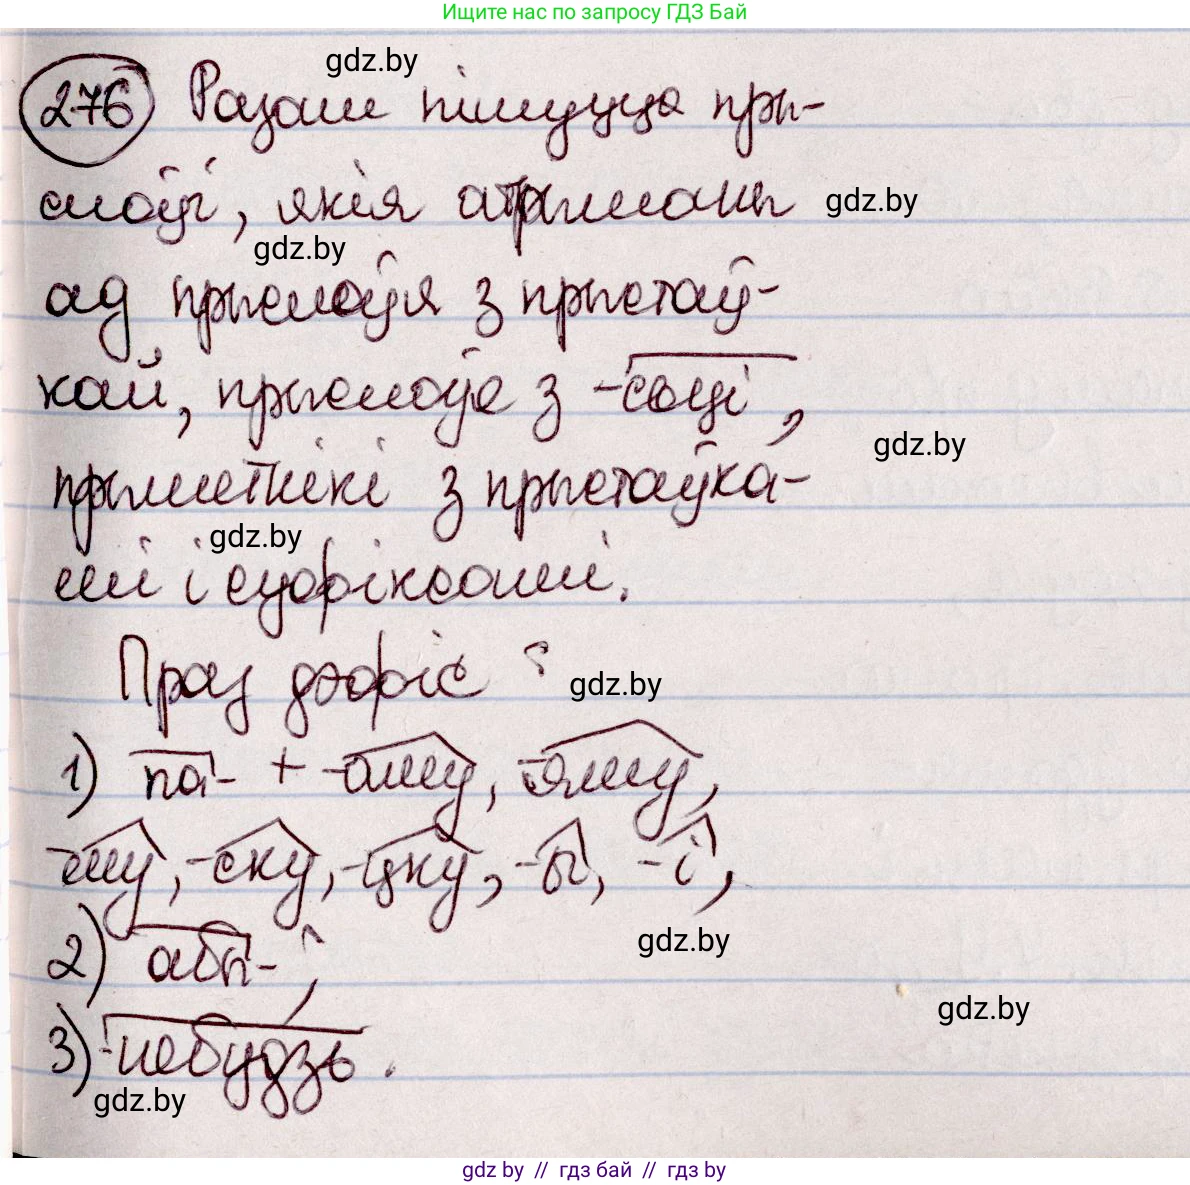 Ищите нас по запросу ГДЗ Бай
gdz.by
276 Разам пішуцца пры-
слоўі, якія атрыманы gdz.by
gdz.by
ад прыслоўя з прыстаў-
кай, прыслоўе з -сьці,
gdz.by
прыметнікі з прыстаўка-
gdz.by
мі і суфіксамі.
Праз дэфіс: gdz.by
1) па- + -аму, -яму,
-му, -ску, -цку, -ы, -і,
2) абы-; gdz.by
gdz.by
3) -небудзь.
gdz.by
gdz by // гдз бай // гдз by